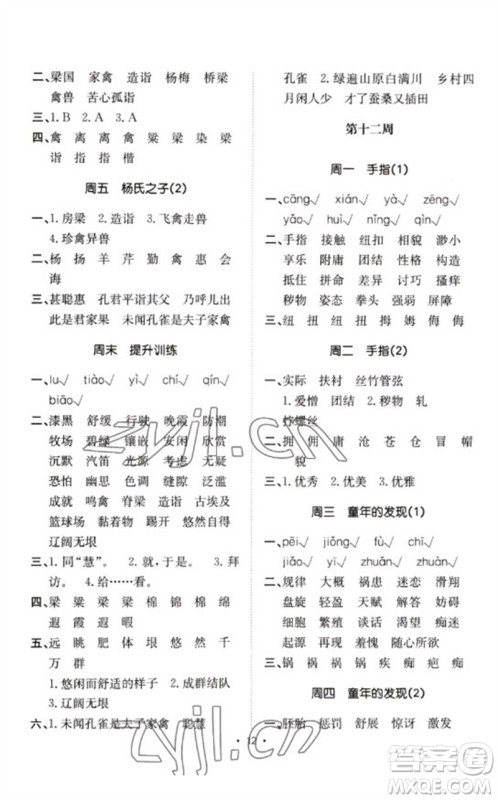 二、梁国 家禽 造诣 杨梅 桥梁
禽兽 苦心孤诣
三、1.B 2.A 3.A
四、禽 离 离 禽 粱 梁 染 梁
诣 指 指 楷
周五 杨氏之子(2)
一、1.房梁 2.造诣 3.飞禽走兽
4.珍禽异兽
二、杨 扬 羊 芹 勤 禽 会
诲
三、甚聪惠 孔君平诣其父 乃呼儿出
此是君家果 未闻孔雀是夫子家禽
周末 提升训练
一、lu√ tiào√ yì√ chí√ qín√
biāo√
二、漆黑 舒缓 行驶 晚霞 防潮
牧场 碧绿 镶嵌 安闲 欣赏
沉默 汽笛 光源 考虑 无疑
恐怖 幽怨 色调 缝隙 漂泛
成就 鸣禽 脊梁 造诣 玄奥
篮球场 胸脯 踢开 悠然自得
辽阔无垠
三、1.同“慧”。 2.对,于是。 3.拜
访。 4.给……看。
四、梁 粱 梁 梁 棉 锦 棉 锦
遐 霞 遐 暇
五、远 眺 肥 体 垠 悠 然 千
万 群
1.悠闲而舒适的样子 2.成群结队
3.辽阔无垠
六、1.未闻孔雀是夫子家禽 聪慧
孔雀 2.绿遍山原白满川 乡村四
月闲人少 才了蚕桑又插田
第十二周
周一 手指(1)
一、cāng√ xián√ yà√ zēng√
yǎo√ huì√ nǐng√ qìn√
二、手指 接触 纽扣 相貌 渺小
享乐 附庸 团结 性格 构造
抵住 拼命 差异 讨巧 搔痒
秽物 姿态 拳头 强弱 屏障
三、纽 扭 扭 纽 拇 姆 侮 侮
周二 手指(2)
一、实际 扶衬 丝竹管弦
1.爱憎 团结 2.秽物 轧
炸螺丝
二、拥 佣 庸 沧 苍 仓 冒 帽
貌
三、1.优秀 2.优美 3.优雅
周三 童年的发现(1)
一、pēi√ jiǒng√ fù√ chì√
jiǎo√ yì√ zhuǎn√ zhuàn√
二、规律 大概 祸患 迷恋 滑翔
盘旋 起初 天赋 艰难 妨碍
细胞 胚胎 澄澈 反正 痴迷
起源 再现 羞愧 随心所欲
三、锅 祸 祸 祸 患 悉 患
周四 童年的发现(2)
一、胚胎 惩罚 舒展 惊讶 激发
· 12 ·
zyjl.cn
zyjl.cn
作业精灵